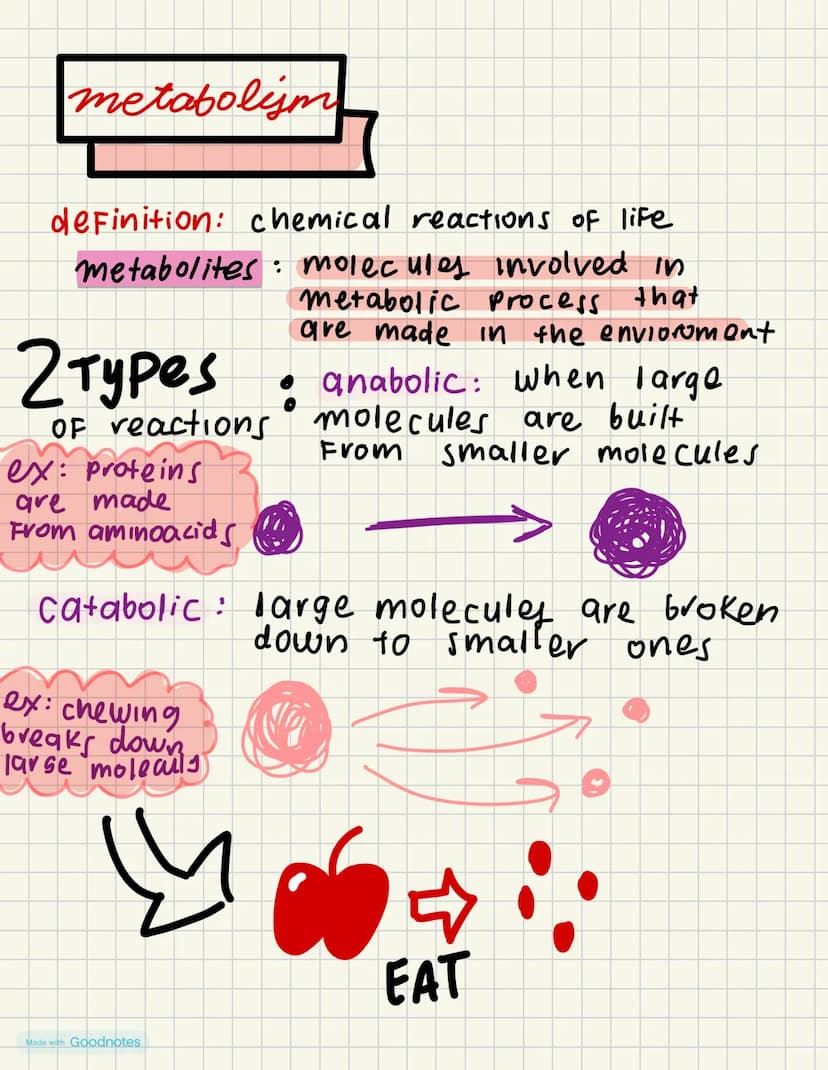 metabolism
definition: chemical reactions of life
metabolites: molecules involved in
metabolic process that
are made in the enviornment
2 Types
of reactions
: anabolic: when large
molecules are built
from smaller molecules
ex: proteins
are made
from aminoacids
catabolic: large molecules are broken
down to smaller ones
ex: chewing
breaks down
large moleculs
EAT
Made with Goodnotes